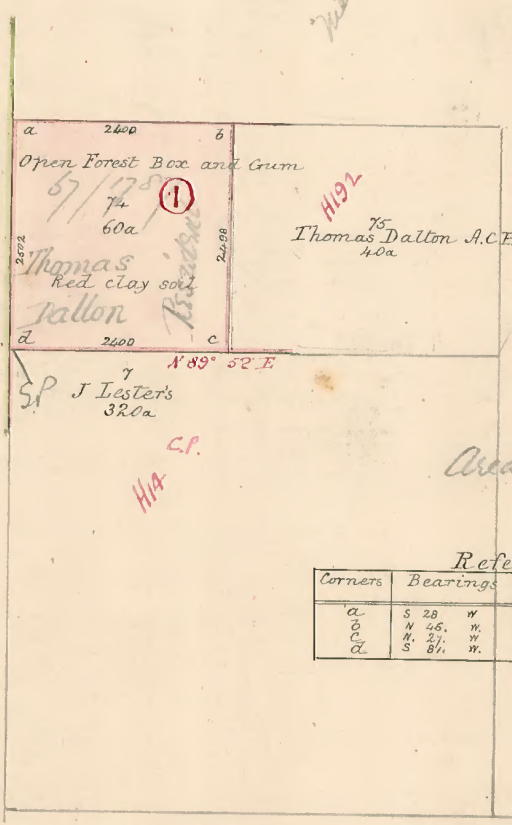 a 2400 b
Open Forest Box and Gum
74
60a
1
2502
2498
Thomas
Dalton
Red clay soil
d 2400 c
H192
75
Thomas Dalton A.C.P
40a
N 89° 52' E
S.P
7
J Lester's
320a
C.P.
H14
Area
Refe
Corners Bearings
a S 28 W
b N 46. W.
c N. 27. W
d S 81. W.